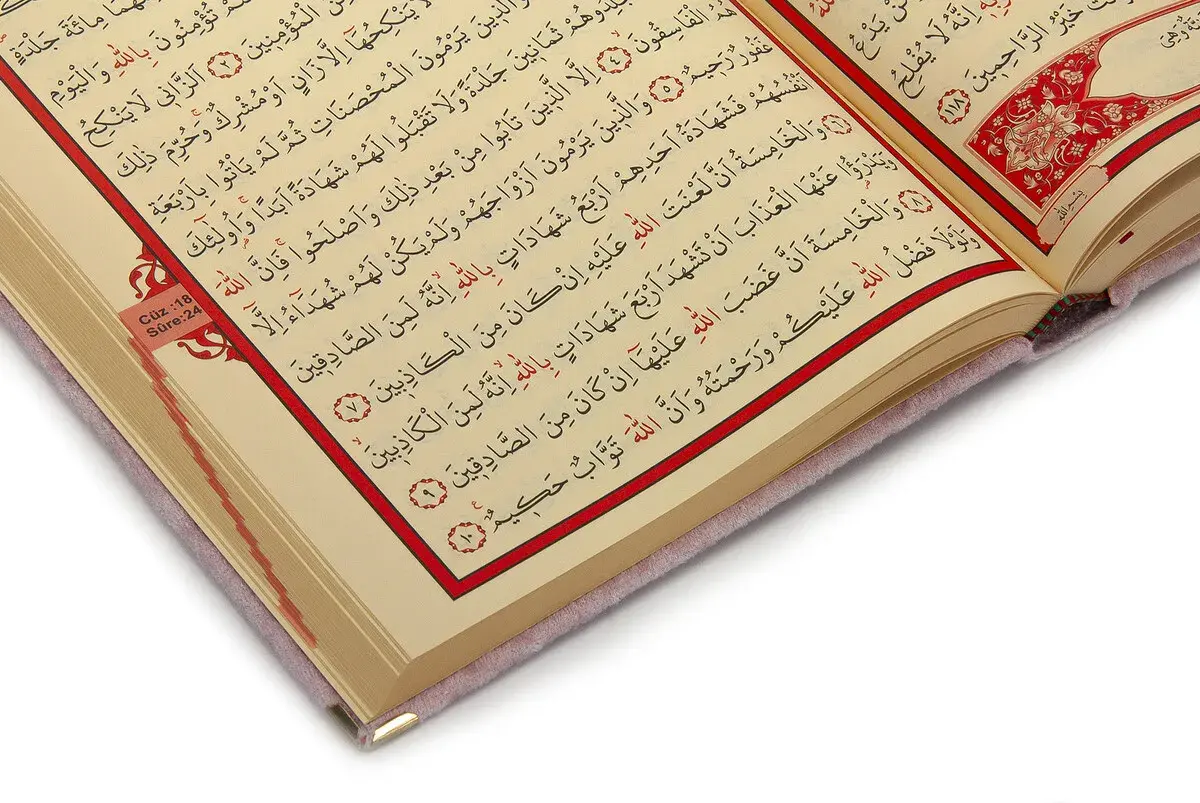 يَدْعُ
اِنَّهُ لَا يُفْلِحُ
خَيْرُ الرَّاحِمِينَ ١١٨
وَهِىَ
بِسْمِ اللّٰهِ
مِائَةَ جَلْدَةٍ
تُؤْمِنُونَ بِاللّٰهِ وَالْيَوْمِ
مِنَ الْمُؤْمِنِينَ ٢ اَلزَّانِى لَا يَنْكِحُ
لَا يَنْكِحُهَا اِلَّا زَانٍ اَوْ مُشْرِكٌ وَحُرِّمَ ذٰلِكَ
وَالَّذِينَ يَرْمُونَ الْمُحْصَنَاتِ ثُمَّ لَمْ يَأْتُوا بِاَرْبَعَةِ
ثَمَانِينَ جَلْدَةً وَلَا تَقْبَلُوا لَهُمْ شَهَادَةً اَبَدًا وَاُولٰٓئِكَ
هُمُ الْفَاسِقُونَ ٤ اِلَّا الَّذِينَ تَابُوا مِنْ بَعْدِ ذٰلِكَ وَاَصْلَحُوا فَاِنَّ اللّٰهَ
غَفُورٌ رَحِيمٌ ٥ وَالَّذِينَ يَرْمُونَ اَزْوَاجَهُمْ وَلَمْ يَكُنْ لَهُمْ شُهَدَٓاءُ اِلَّٓا
اَنْفُسُهُمْ فَشَهَادَةُ اَحَدِهِمْ اَرْبَعُ شَهَادَاتٍ بِاللّٰهِ اِنَّهُ لَمِنَ الصَّادِقِينَ
٦ وَالْخَامِسَةُ اَنَّ لَعْنَتَ اللّٰهِ عَلَيْهِ اِنْ كَانَ مِنَ الْكَاذِبِينَ ٧
وَيَدْرَؤُا عَنْهَا الْعَذَابَ اَنْ تَشْهَدَ اَرْبَعَ شَهَادَاتٍ بِاللّٰهِ اِنَّهُ لَمِنَ الْكَاذِبِينَ
٨ وَالْخَامِسَةَ اَنَّ غَضَبَ اللّٰهِ عَلَيْهَٓا اِنْ كَانَ مِنَ الصَّادِقِينَ ٩
وَلَوْلَا فَضْلُ اللّٰهِ عَلَيْكُمْ وَرَحْمَتُهُ وَاَنَّ اللّٰهَ تَوَّابٌ حَكِيمٌ ١٠
Cüz :18
Sûre:24